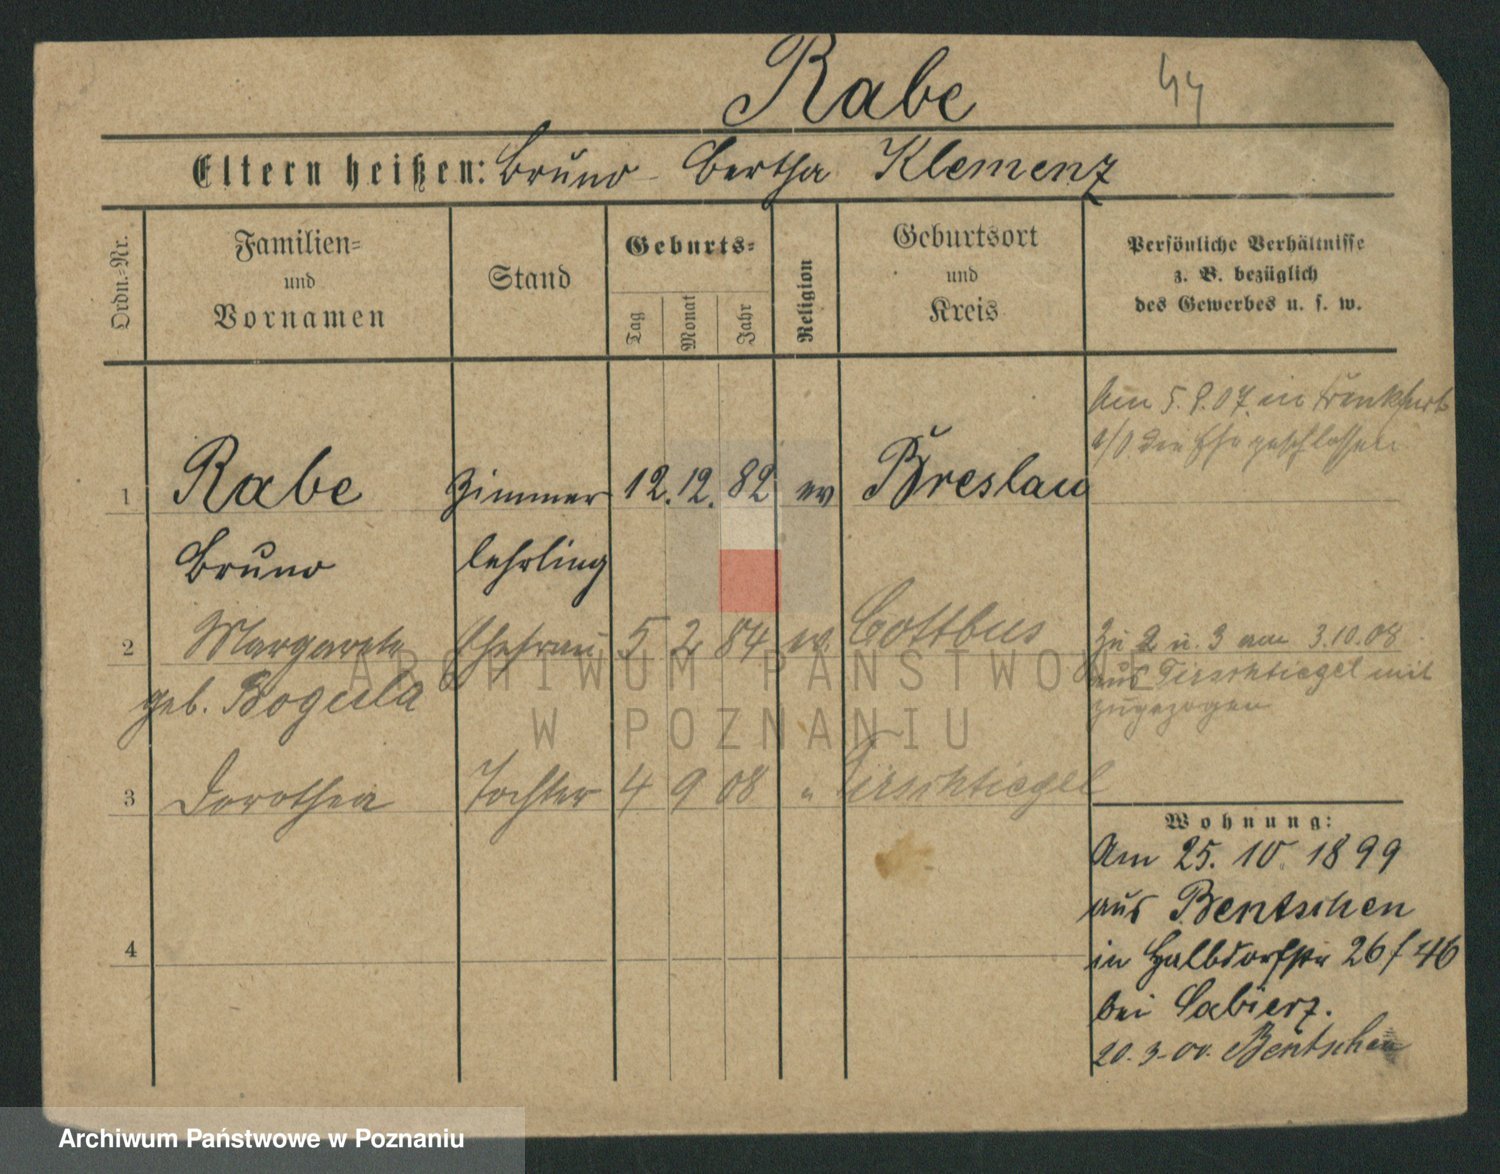 Rabe 44
Eltern heißen: Bruno - Bertha Klemenz
Ordn.-Nr.
Familien-
und
Vornamen
Stand
Geburts-
Tag
Monat
Jahr
Religion
Geburtsort
und
Kreis
Persönliche Verhältnisse
z. B. bezüglich
des Gewerbes u. s. w.
Am 5.9.07. in Frankfurt
a/O die Ehe geschlossen
1 Rabe Zimmer 12. 12. 82 ev Breslau
Bruno lehrling
2 Margarete Ehefrau 5 2 84 ev. Cottbus
geb. Bogula
Zu 2 u. 3 am 3.10.08
aus Tirschtiegel mit
zugezogen
3 Dorothea Tochter 4 9 08 " Tirschtiegel
4
Wohnung:
Am 25. 10. 1899
aus Bentschen
in Halbdorfstr 26/46
bei Sabierz.
20.3.00. Bentschen
ARCHIWUM PAŃSTWOWE
W POZNANIU
Archiwum Państwowe w Poznaniu